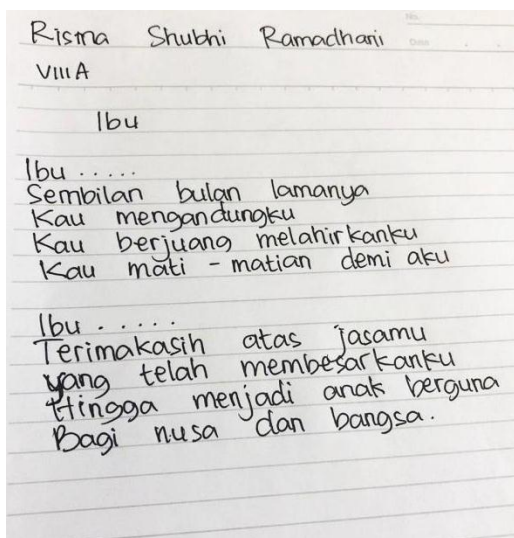 Risma Shubhi Ramadhani
No.
Date
VIII A
Ibu
Ibu .....
Sembilan bulan lamanya
Kau mengandungku
Kau berjuang melahirkanku
Kau mati - matian demi aku
Ibu .....
Terimakasih atas jasamu
yang telah membesarkanku
Hingga menjadi anak berguna
Bagi nusa dan bangsa.